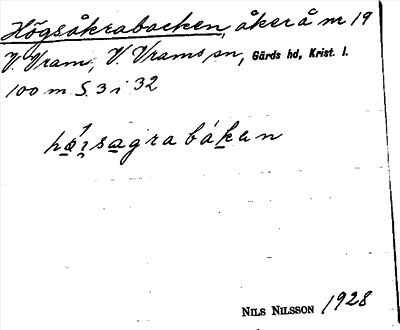 Högsåkrabacken, åker å nr 19
V. Vram, V. Vrams sn, Gärds hd, Krist. l.
100 m S. 3 i 32
NILS NILSSON 1928